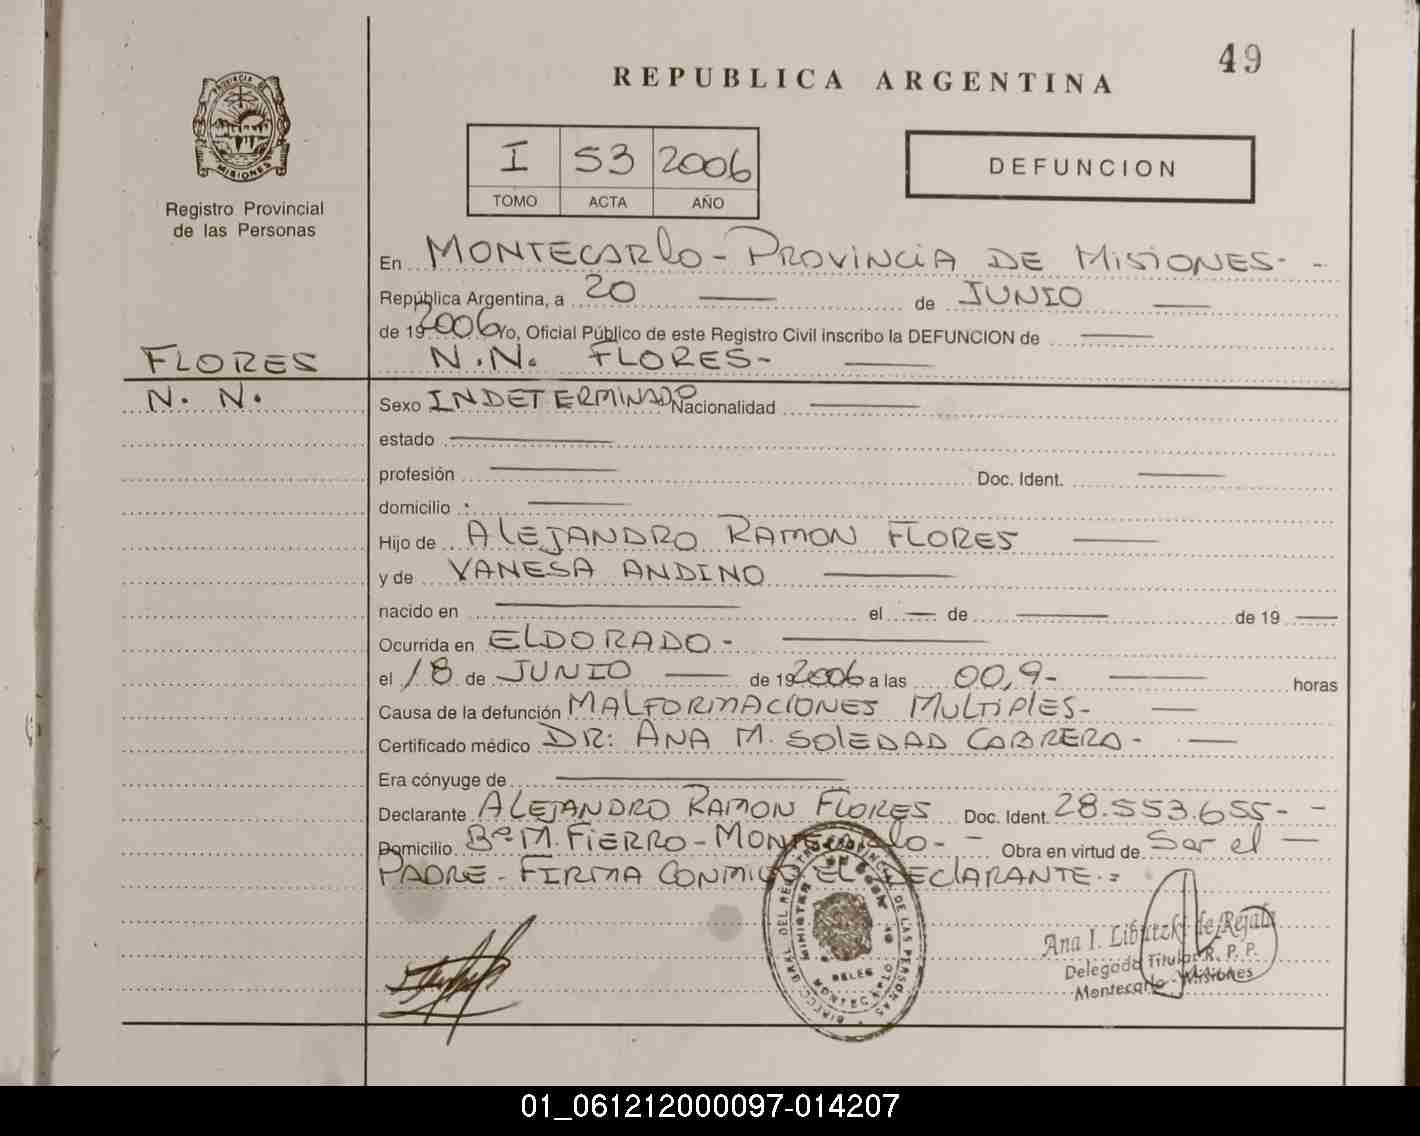 49
REPUBLICA ARGENTINA
PROVINCIA DE
MISIONES
Registro Provincial
de las Personas
I 53 2006
TOMO ACTA AÑO
DEFUNCION
En MONTECARLO - PROVINCIA DE MISIONES - -
República Argentina, a 20 de JUNIO
de 19 2006 Yo, Oficial Público de este Registro Civil inscribo la DEFUNCION de
FLORES
N. N.
N.N. FLORES-
Sexo INDETERMINADO Nacionalidad
estado
profesión Doc. Ident.
domicilio
Hijo de ALEJANDRO RAMON FLORES
y de VANESA ANDINO
nacido en el de de 19
Ocurrida en ELDORADO -
el 18 de JUNIO de 19 2006 a las 00,9- horas
Causa de la defunción MALFORMACIONES MULTIPLES-
Certificado médico DR: ANA M. SOLEDAD CABRERA-
Era cónyuge de
Declarante ALEJANDRO RAMON FLORES Doc. Ident. 28.553.655- -
Domicilio Bº M. FIERRO - MONTECARLO - Obra en virtud de Ser el
PADRE - FIRMA CONMIGO EL DECLARANTE.=
Ana I. Libutzki de Rejala
Delegada Titular R. P. P.
Montecarlo - Misiones
DE LAS PERSONAS
MONTECARLO
01_061212000097-014207